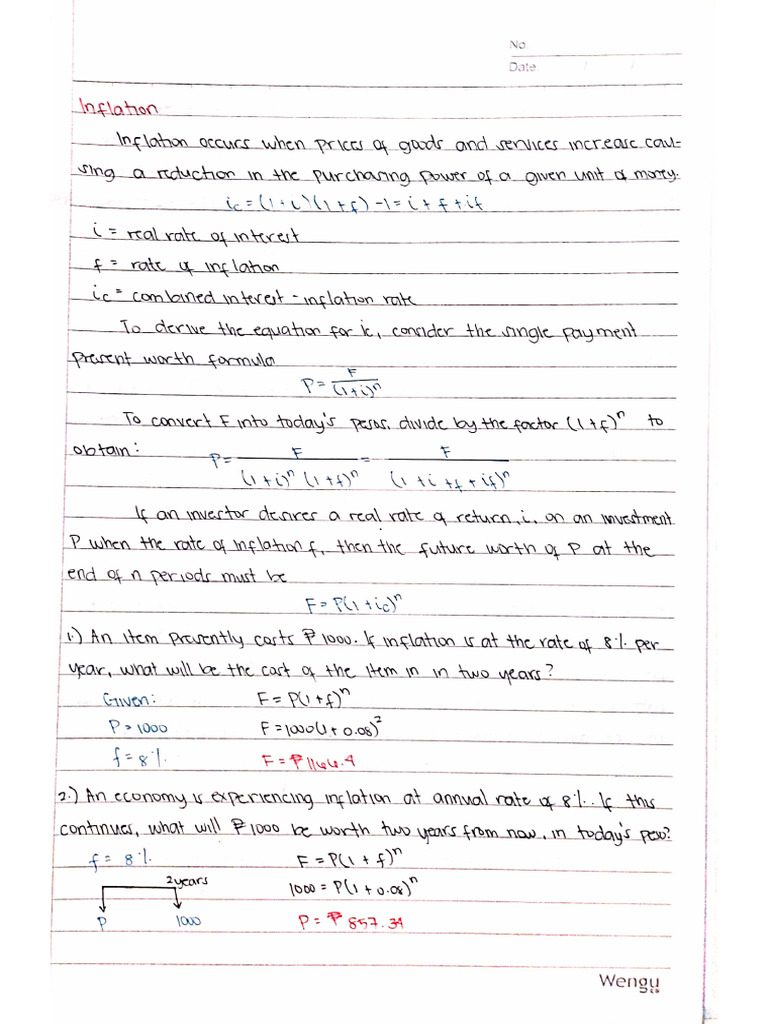 No.
Date / /
Inflation
Inflation occurs when prices of goods and services increase cau-
sing a reduction in the purchasing power of a given unit of money.
ic = (1+i)(1+f) -1 = i + f + if
i = real rate of interest
f = rate of inflation
ic = combined interest - inflation rate
To derive the equation for ic, consider the single payment
present worth formula
P = F / (1+i)^n
To convert F into today's pesos, divide by the factor (1+f)^n to
obtain:
P = F / (1+i)^n (1+f)^n = F / (1+i+f+if)^n
If an investor desires a real rate of return, i, on an investment
P when the rate of inflation f, then the future worth of P at the
end of n periods must be
F = P(1+ic)^n
1.) An item presently costs ₱1000. If inflation is at the rate of 8% per
year, what will be the cost of the item in in two years?
Given: F = P(1+f)^n
P = 1000 F = 1000(1+0.08)^2
f = 8% F = ₱1166.4
2.) An economy is experiencing inflation at annual rate of 8%. If this
continues, what will ₱1000 be worth two years from now, in today's peso?
f = 8% F = P(1+f)^n
2 years 1000 = P(1+0.08)^n
P 1000 P = ₱857.34
Wengu